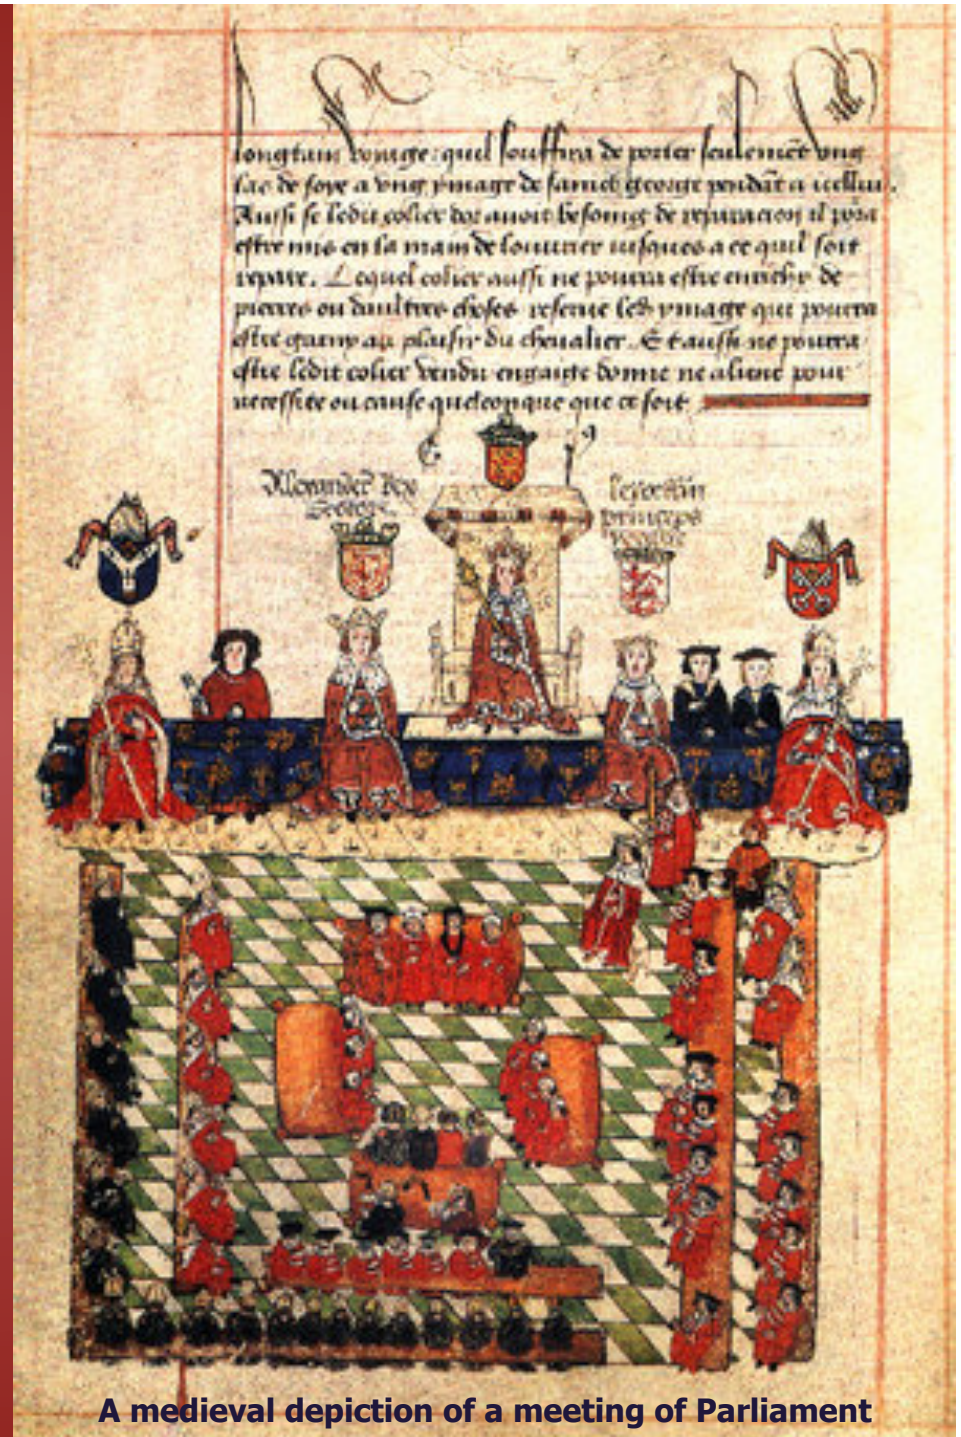 longtain voiaige: quil souffira de porter seulemēt ung
las de soye a ung ymage de sainct george pendāt a icellui.
Aussi se ledit colier dor avoit besoing de reparacion il porra
estre mis en la main de louvrier iusques a ce quil soit
repare. Lequel colier aussi ne pourra estre enrichy de
pierres ou daultres choses reserve led ymage qui pourra
estre garny au plaisir du chevalier. Et aussi ne pourra
estre ledit colier vendu engaige donne ne aliene pour
necessite ou cause quelconque que ce soit
Alexander Rex
princeps
A medieval depiction of a meeting of Parliament